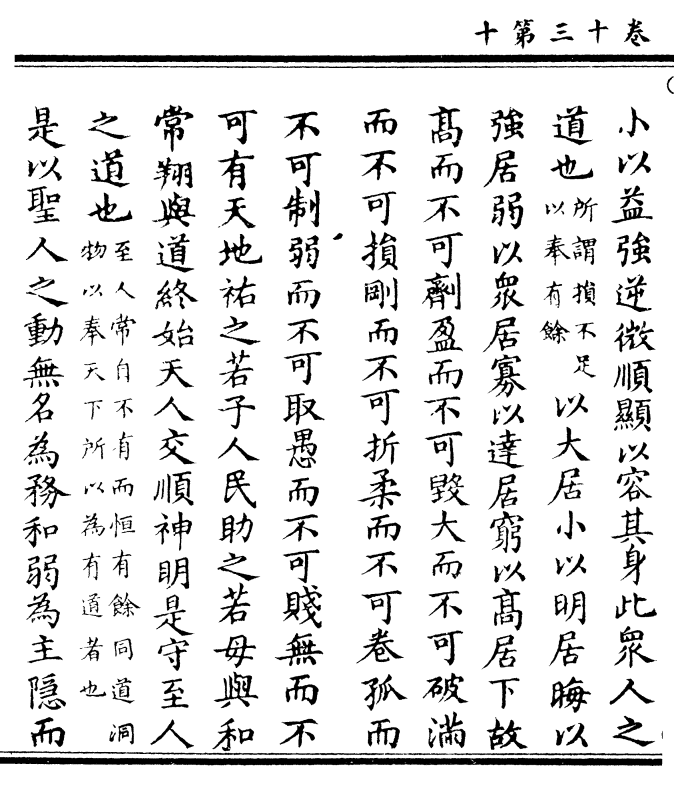 卷十三第十
小以益強逆微順顯以容其身此衆人之
道也所謂損不足以奉有餘以大居小以明居晦以
強居弱以衆居寡以達居窮以髙居下故
髙而不可劑盈而不可毀大而不可破滿
而不可損剛而不可折柔而不可卷孤而
不可制弱而不可取愚而不可賤無而不
可有天地祐之若子人民助之若母與和
常翔與道終始天人交順神明是守至人
之道也至人常自不有而恒有餘同道洞物以奉天下所以為有道者也
是以聖人之動無名為務和弱為主隠而